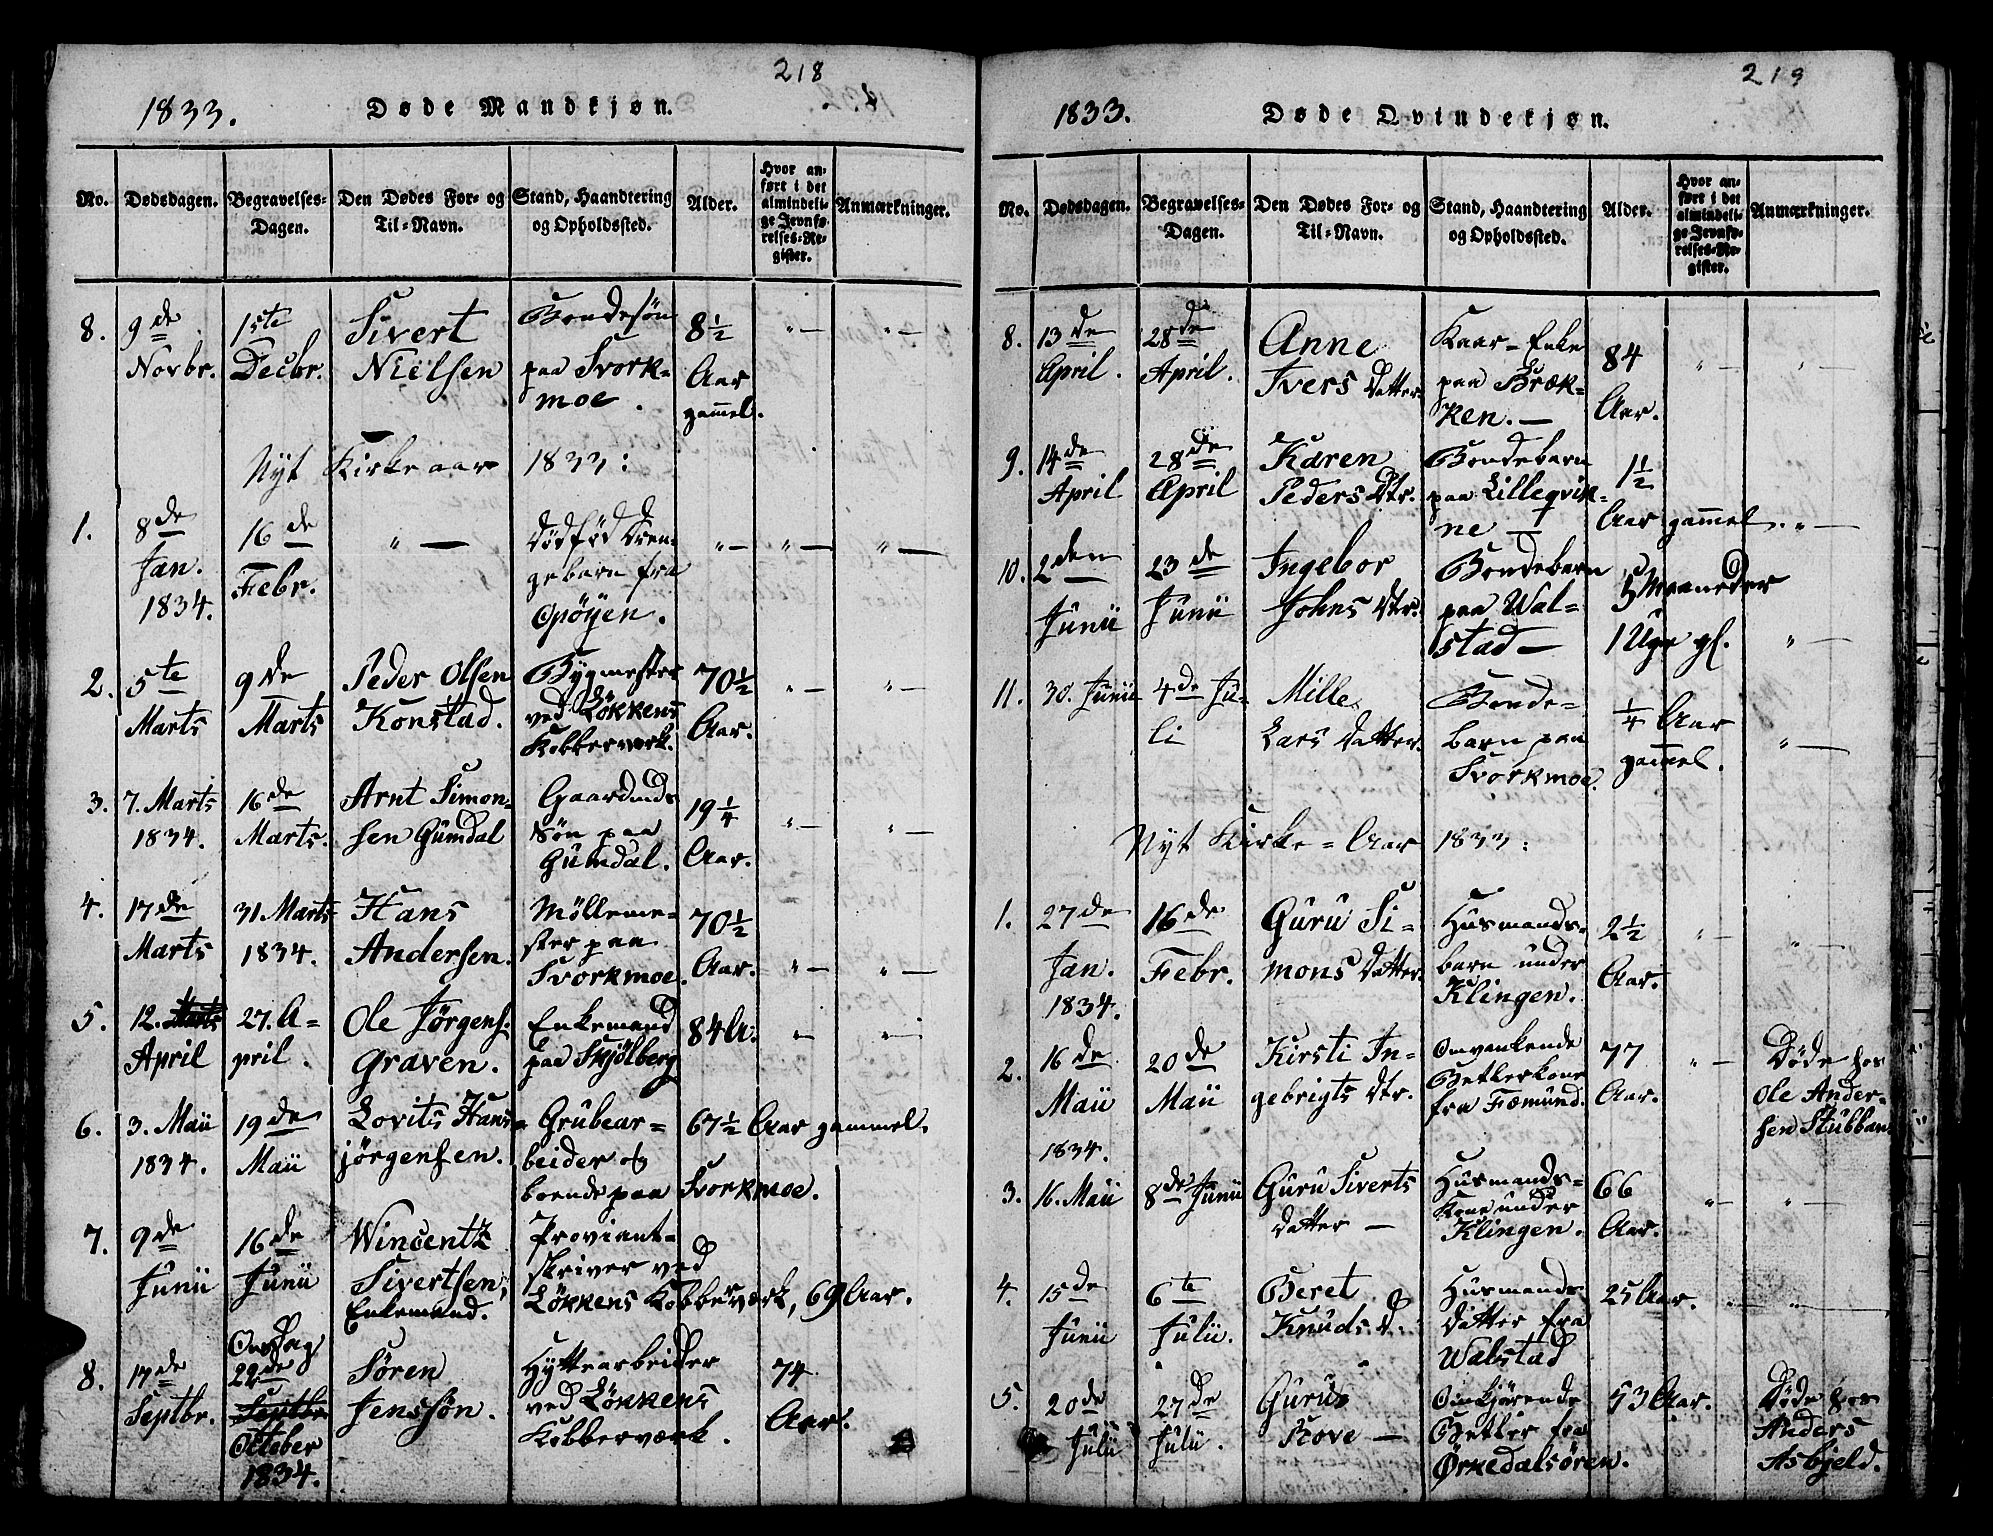 218
1833. Døde Mandkjøn.
No. Dødsdagen. Begravelses-Dagen. Den Dødes For- og Til-Navn. Stand, Haandtering og Opholdssted. Alder. Hvor anført i det almindelige Jevnførelses-Register. Anmærkninger.
8. 9de Novbr. 1ste Decbr. Sivert Nielsen Bondesøn paa Svorkmoe. 8½ Aar gammel. " — " —
Nyt Kirkeaar 1833:
1. 8de Jan. 1834. 16de Febr. " — Dødfød Drengebarn fra Opøyen. " — " — " —
2. 5te Marts 9de Marts Peder Olsen Konstad. Bygmester ved Løkkens Kobberværk. 70½ Aar. " — " —
3. 7. Marts 1834. 16de Marts. Arnt Simonsen Gumdal Gaardmds Søn paa Gumdal. 19¼ Aar. " — " —
4. 17de Marts 31 Marts 1834. Hans Andersen. Møllemester paa Svorkmoe. 70½ Aar. " — " —
5. 12. Marts April 27. April. Ole Jørgens. Graven. Enkemand paa Skjølberg 84 A. " — " —
6. 3. Maii 1834. 19de Maii Lovits Hansjørgensen. Grubearbeider og boende paa Svorkmoe. 67½ Aar gammel.
7. 9de Junii 16de Junii Wincentz Sivertsen, Enkemand. Proviantskriver ved Løkkens Kobberværk, 69 Aar.
8. 17de Septbr. Onsdag 22de Septbr October 1834. Søren Jenssøn. Hyttearbeider ved Løkkens Kobberværk. 74 Aar.
219
1833. Døde Qvindekjøn.
No. Dødsdagen. Begravelses-Dagen. Den Dødes For- og Til-Navn. Stand, Haandtering og Opholdssted. Alder. Hvor anført i det almindelige Jevnførelses-Register. Anmærkninger.
8. 13de April. 28de April. Anne Ivers Datter. Kaar-Enke paa Brækken. — 84 Aar. " — "
9. 14de April 28de April Karen Peders Dtr. Bondebarn paa Lilleqvikne — 1½ Aar gammel. " —
10. 2den Junii 23de Junii Ingebor Johns Dtr. Bondebarn paa Walstad — 5 Maaneder 1 Uge gl. " —
11. 30. Junii 4de Juli Mille Lars Datter. Bondebarn paa Svorkmoe. ¼ Aar gammel. " —
Nyt Kirke-Aar 1833:
1. 27de Jan. 1834. 16de Febr. Guru Simons Datter. Husmandsbarn under Klingen. 2½ Aar. " — " —
2. 16de Maii 1834. 20de Maii Kirsti Ingebrigts Dtr. Omvankende Betlerkone fra Fæmund. 77 Aar. " — Døde hos Ole Andersen Stubban
3. 16. Maii 8de Junii Guru Siverts Datter — Husmands-Kone under Klingen. 66 Aar. " — " —
4. 15de Junii 6te Julii. Beret Knuds D. Husmands-Datter fra Walstad 25 Aar. " — " —
5. 20de Julii 27de Julii. Gurus Kove — Omkjørende Betler fra Ørkedalsøren. 53 Aar. Døde hos Anders Asbjeld.